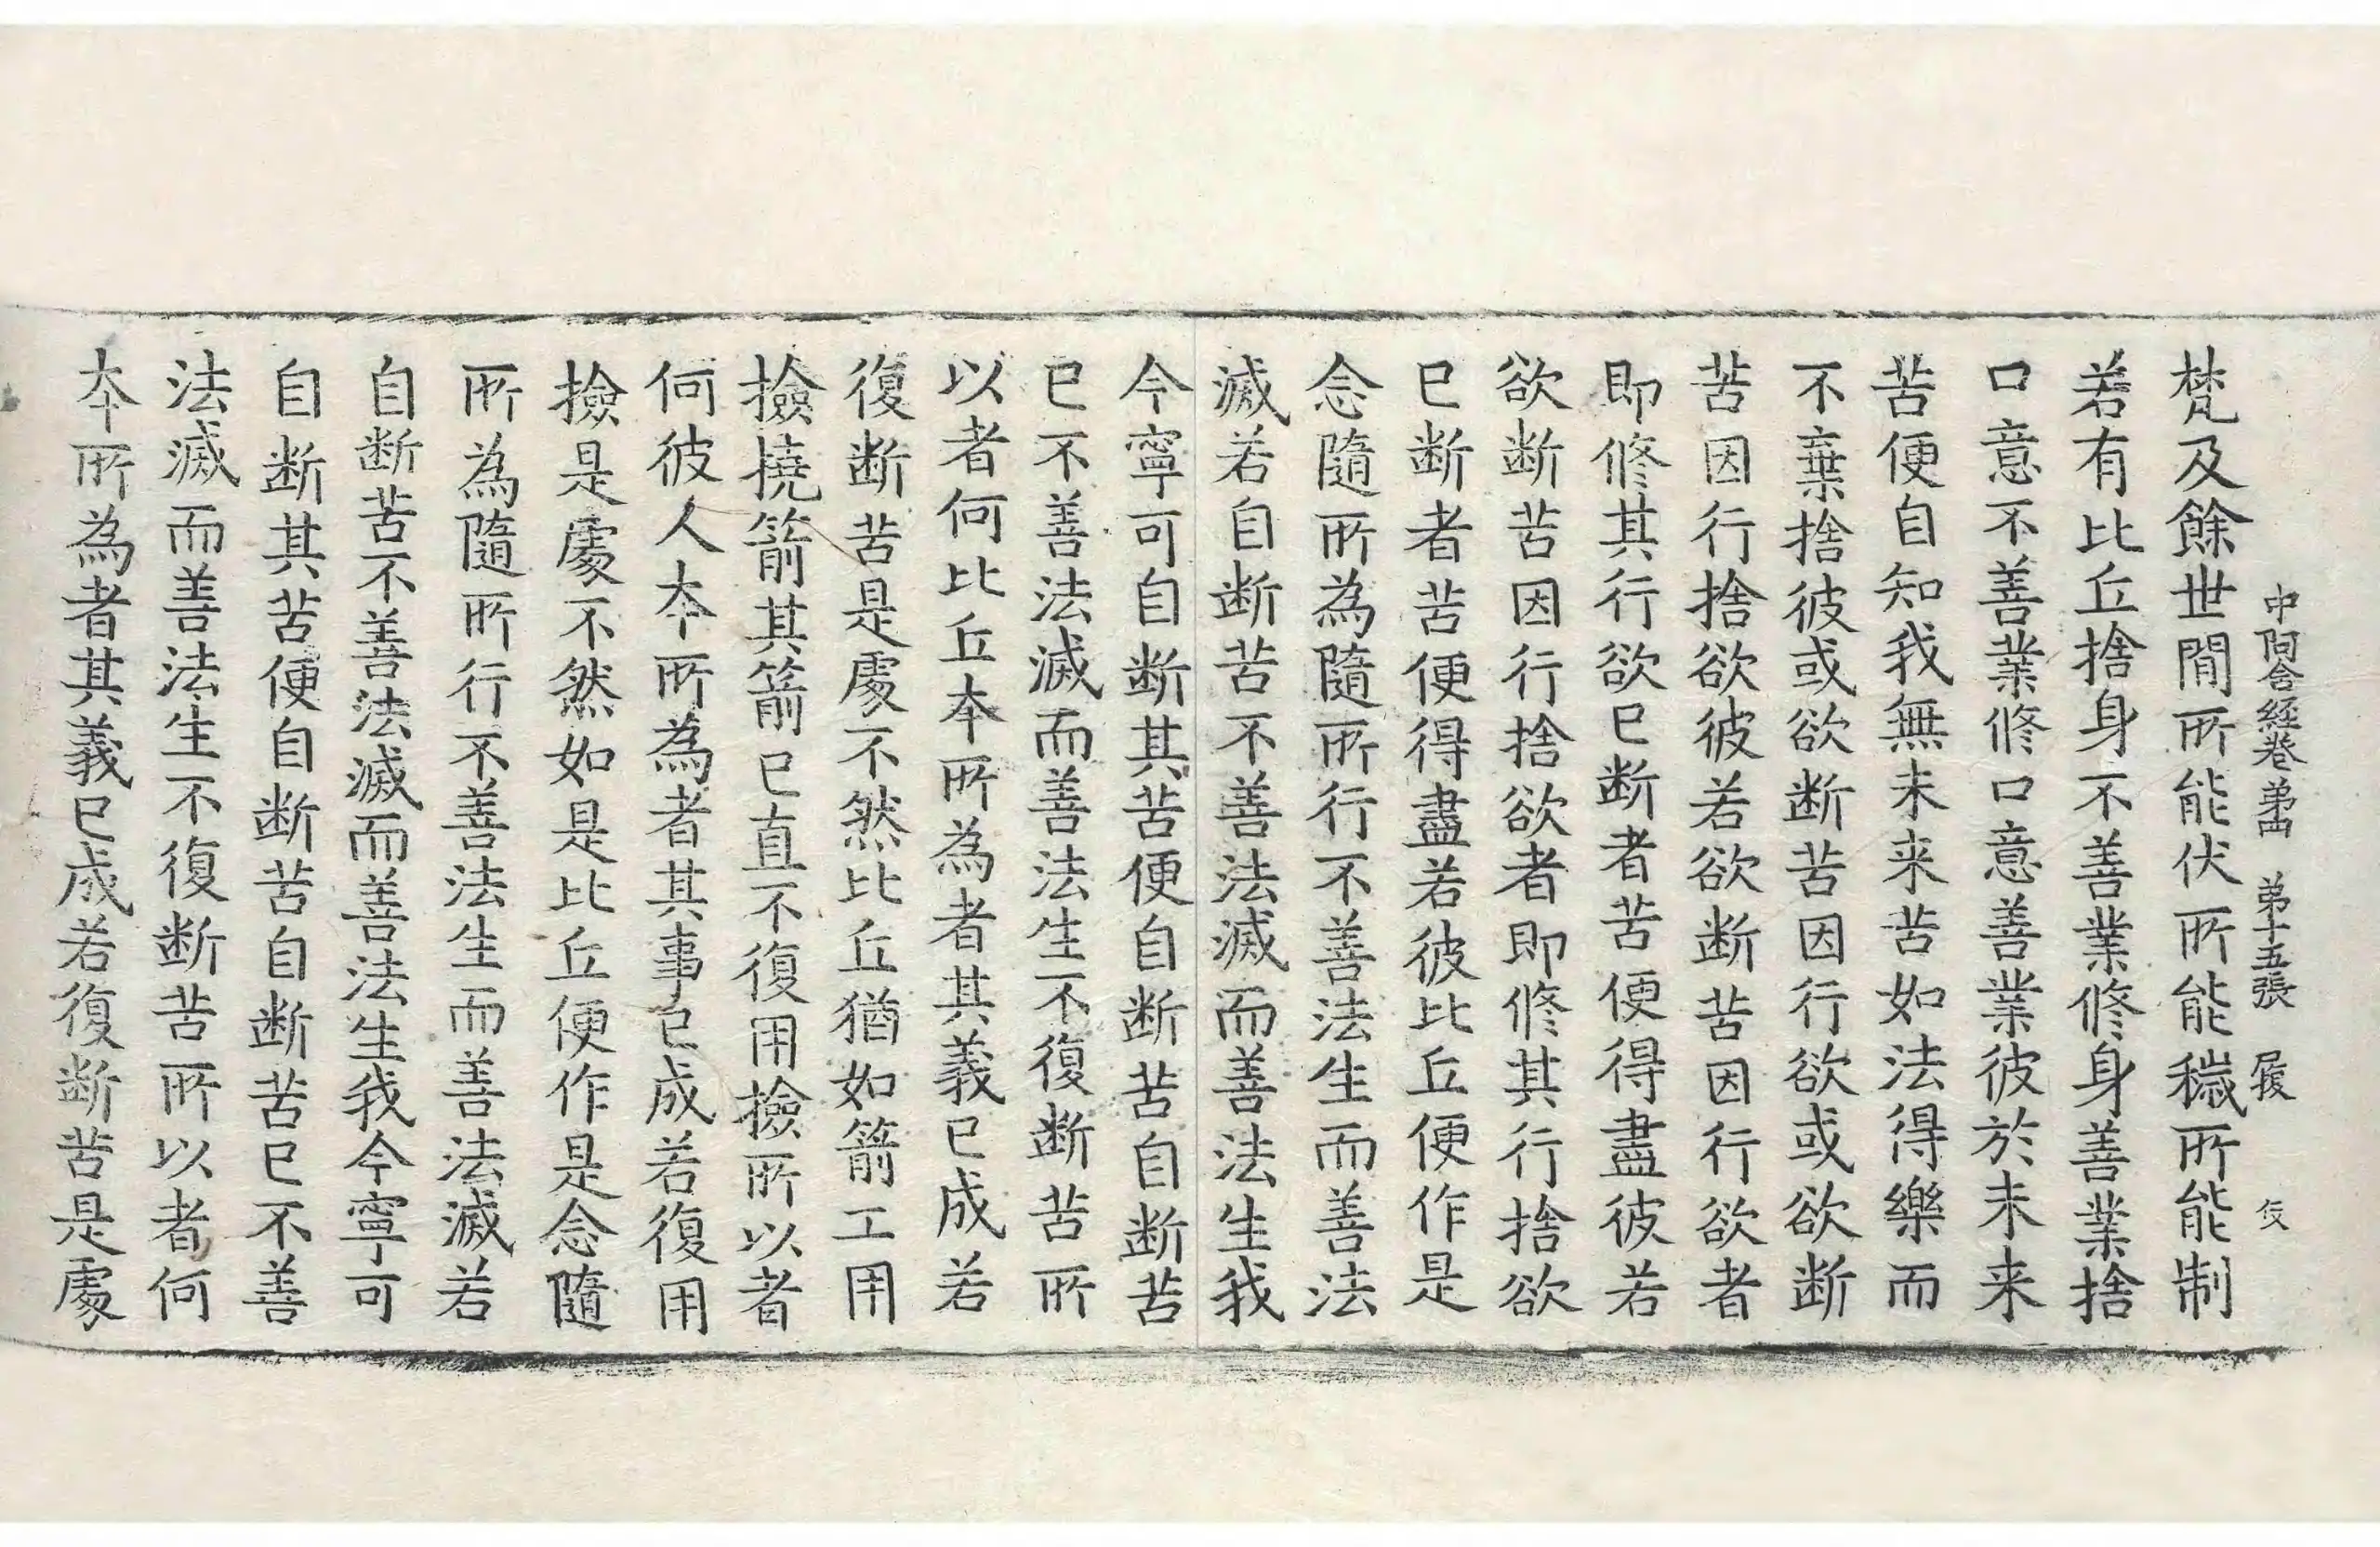 中阿含經卷第四　第十五張　履
梵及餘世閒所能伏所能穢所能制
若有比丘捨身不善業修身善業捨
口意不善業修口意善業彼於未来
苦便自知我無未来苦如法得樂而
不棄捨彼或欲断苦因行欲或欲断
苦因行捨欲彼若欲断苦因行欲者
即修其行欲已断者苦便得盡彼若
欲断苦因行捨欲者即修其行捨欲
已断者苦便得盡若彼比丘便作是
念隨所為隨所行不善法生而善法
滅若自断苦不善法滅而善法生我
今寧可自断其苦便自断苦自断苦
已不善法滅而善法生不復断苦所
以者何比丘本所為者其義已成若
復断苦是處不然比丘猶如箭工用
撿撓箭其箭已直不復用撿所以者
何彼人本所為者其事已成若復用
撿是處不然如是比丘便作是念隨
所為隨所行不善法生而善法滅若
自断苦不善法滅而善法生我今寧可
自断其苦便自断苦自断苦已不善
法滅而善法生不復断苦所以者何
本所為者其義已成若復断苦是處